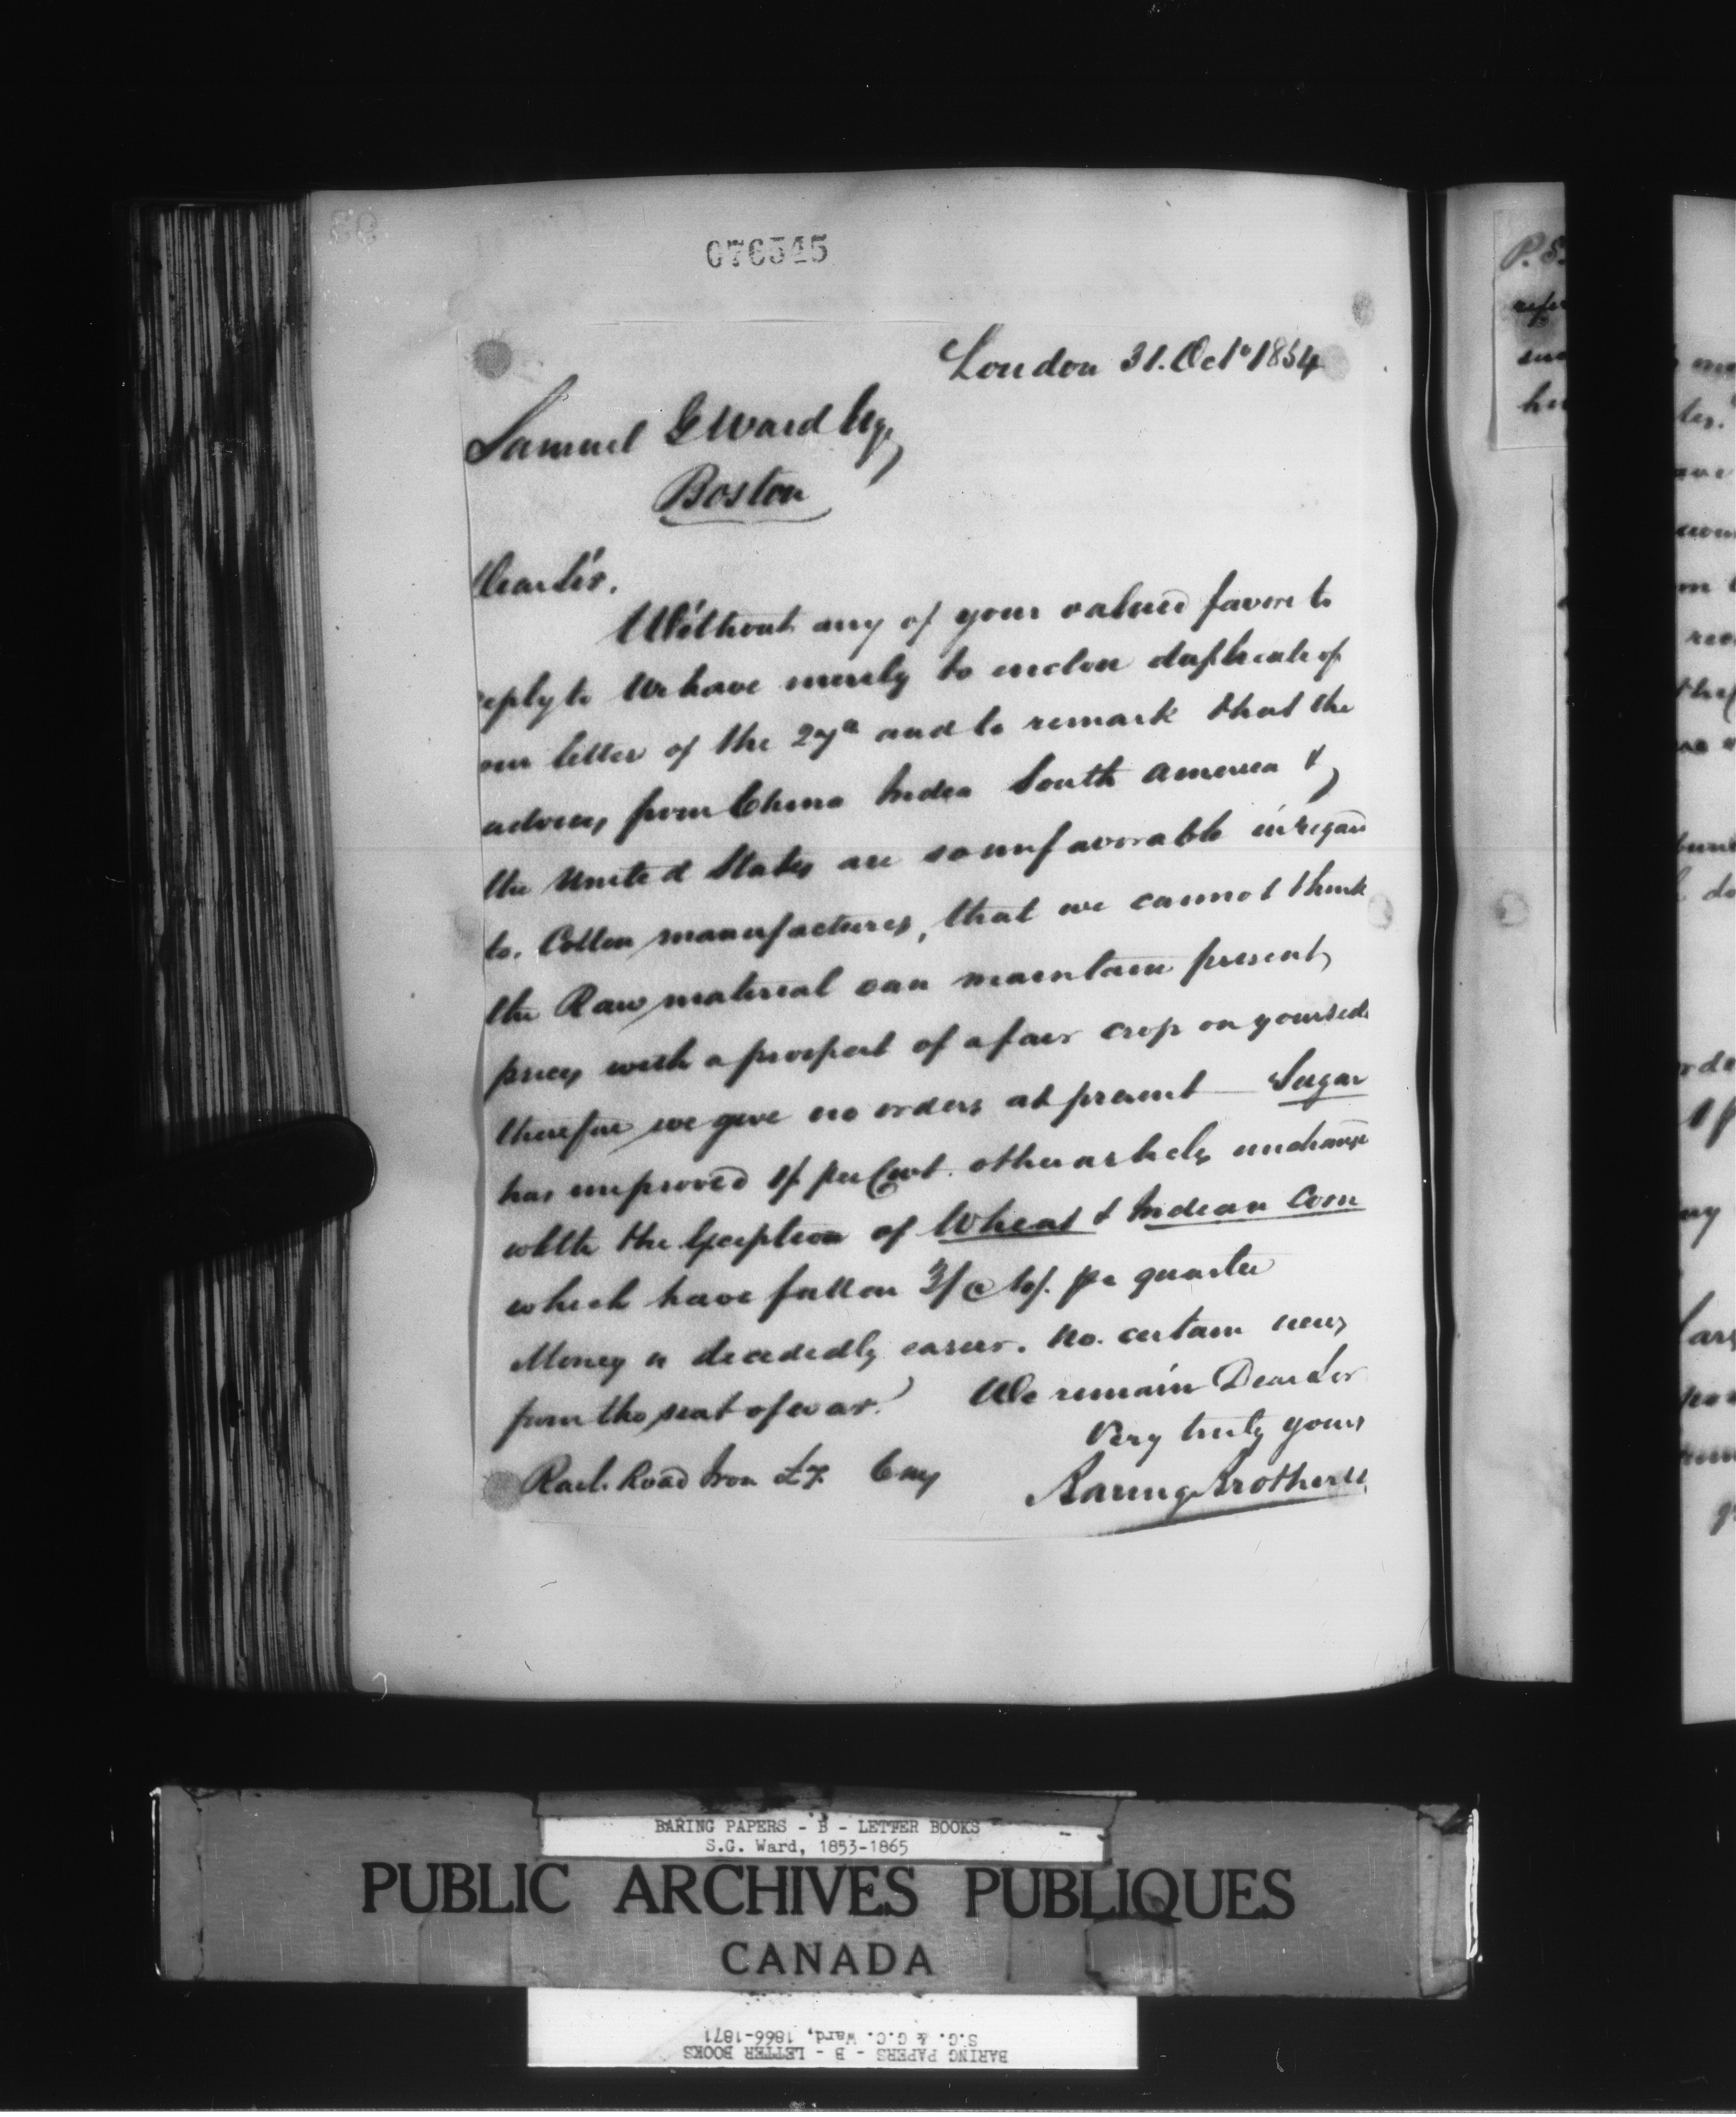 076545
London 31. Octr 1854
Samuel G Ward Esq,
Boston
Dear Sir.
Without any of your valued favors to
reply to We have merely to enclose duplicate of
our letter of the 27th and to remark that the
advices from China India South America &
the United States are so unfavorable in regard
to. Cotton manufactures, that we cannot think
the Raw material can maintain present
prices with a prospect of a fair crop on your side
therefore we give no orders at present — Sugar
has improved 1/ per Cwt. other articles unchangd
with the Exception of Wheat & Indian Corn
which have fallen 3/ @ per quarter
Money is decidedly easier. No. certain news
from the seat of war.
We remain Dear Sir
Very truly yours
Rail. Road Iron £7.
Baring Brothers
P. S.
BARING PAPERS - B - LETTER BOOKS
S.G. Ward, 1853-1865
PUBLIC ARCHIVES PUBLIQUES
CANADA
S.G. & G.C. Ward, 1866-1871
BARING PAPERS - B - LETTER BOOKS